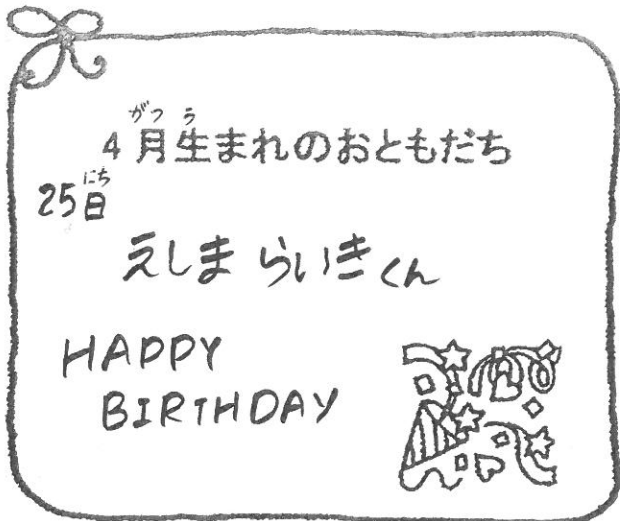 4月生まれのおともだち
25日
えしま らいきくん
HAPPY
BIRTHDAY